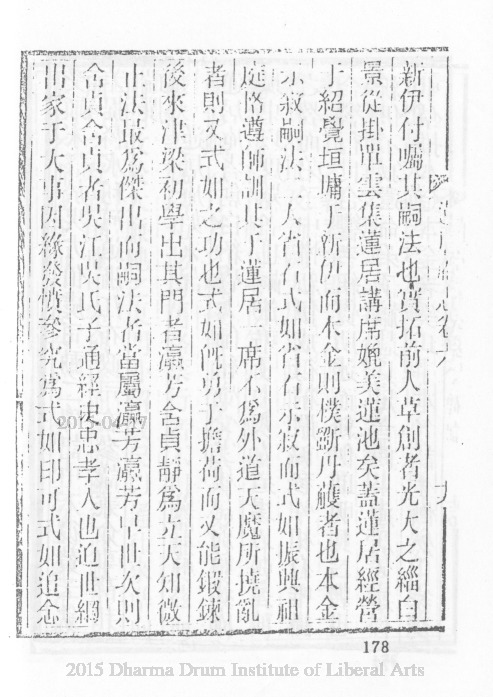 蓮居庵志卷六
九
新伊付囑其嗣法也實拓前人草創者光大之緇白
景從掛單雲集蓮居講席媲美蓮池矣蓋蓮居經營
于紹覺垣墉于新伊而本金則樸斲丹雘者也本金
示寂嗣法二人省石式如省石示寂而式如振興祖
庭恪遵師訓其于蓮居一席不爲外道天魔所撓亂
者則又式如之功也式如旣勇于擔荷而又能鍛鍊
後來津梁初學出其門者瀛芳含貞靜爲立天知微
止法最爲傑出而嗣法者當屬瀛芳瀛芳早世次則
含貞含貞者吳江吳氏子通經史忠孝人也迫世網
出家于大事因緣發憤參究爲式如印可式如追念
178
2015 Dharma Drum Institute of Liberal Arts